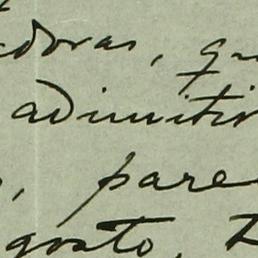 adoras, qu
adimitir
, pare
gosto, D